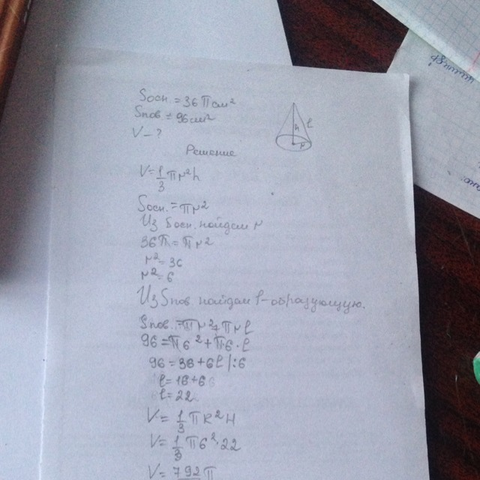 Sосн. = 36π см²
Sпов = 96см²
V – ?
h l r
Решение
V = 1/3 πr²h
Sосн. = πr²
Из Sосн. найдем r
36π = πr²
r² = 36
r² = 6
Из Sпов. найдем l - образующую.
Sпов. = πr² + πrl
96 = π6² + π6·l
96 = 36 + 6l |:6
l = 16 + 6
l = 22
V = 1/3 πR²H
V = 1/3 π6²·22
V = 792π